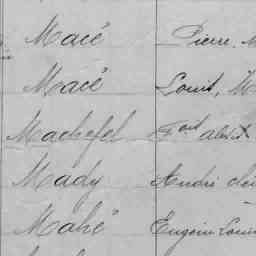 Macé Pierre, M
Macé Louis, M
Machefel
Mady André
Mahé Eugène Louis